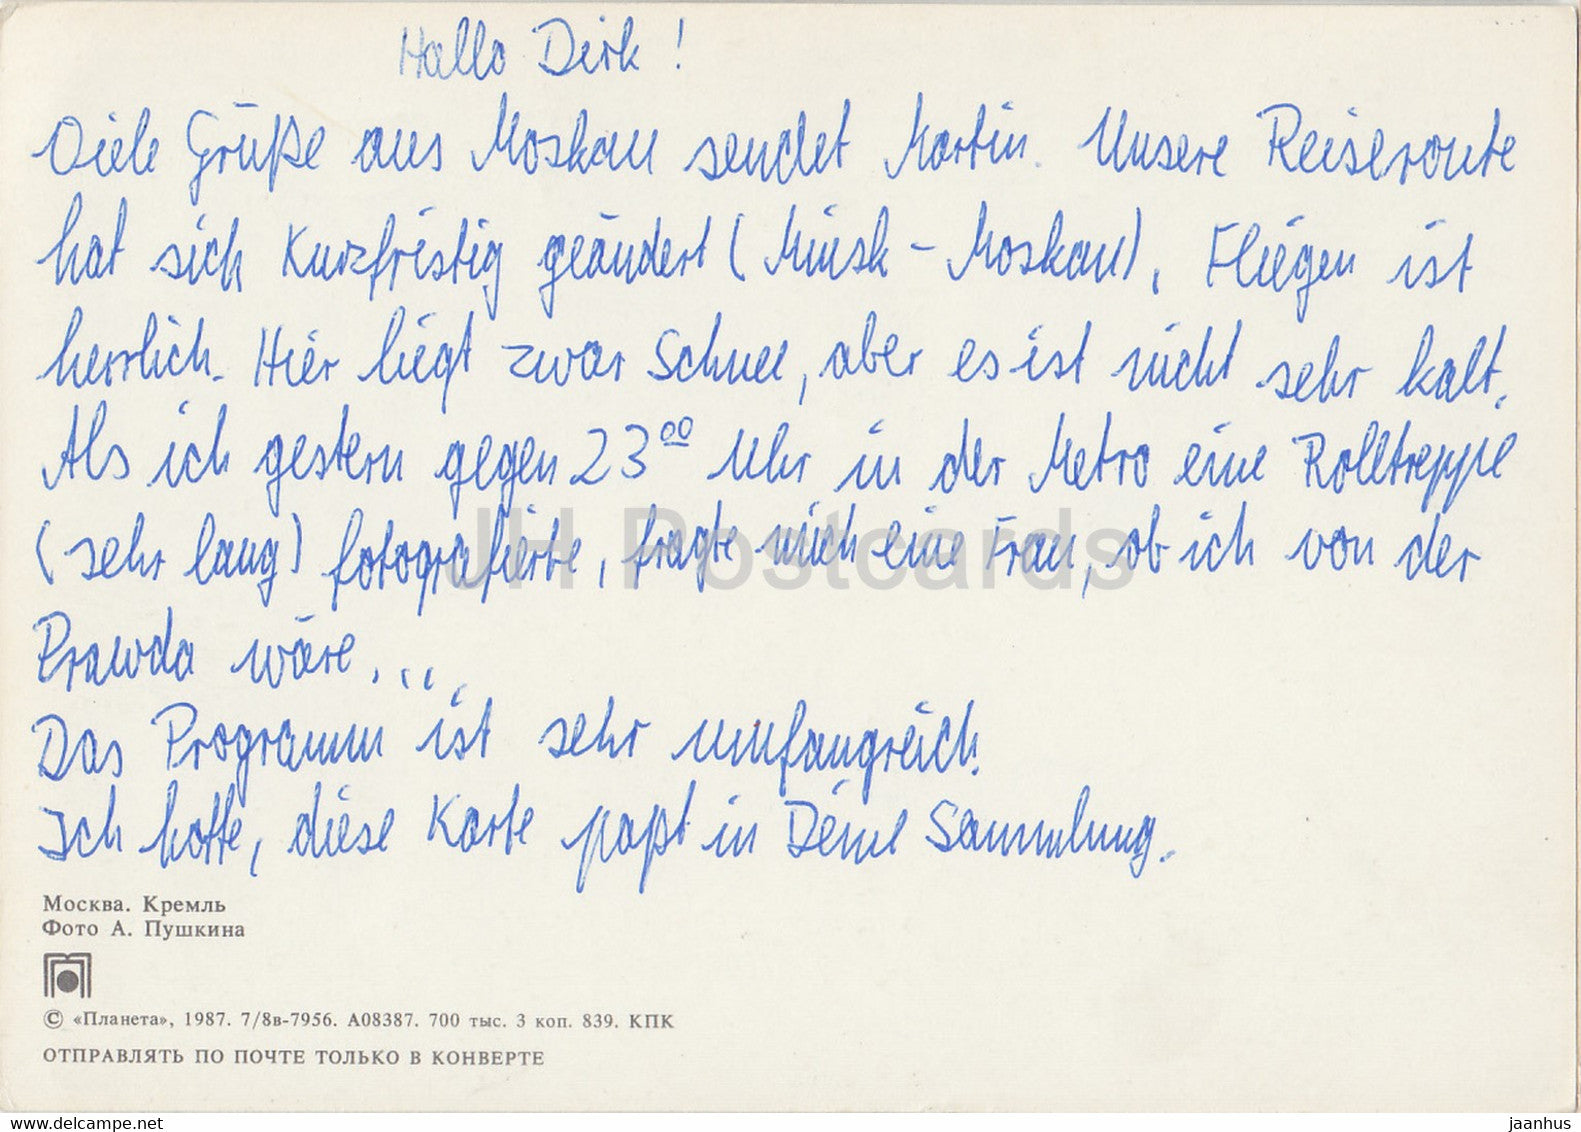 Hallo Dirk !
Viele Grüße aus Moskau sendet Martin. Unsere Reiseroute
hat sich kurzfristig geändert (Minsk - Moskau). Fliegen ist
herrlich. Hier liegt zwar Schnee, aber es ist nicht sehr kalt.
Als ich gestern gegen 23⁰⁰ Uhr in der Metro eine Rolltreppe
(sehr lang) fotografierte, fragte mich eine Frau, ob ich von der
Prawda wäre....
Das Programm ist sehr umfangreich.
Ich hoffe, diese Karte paßt in Deine Sammlung.
JH Postcards
Москва. Кремль
Фото А. Пушкина
© «Планета», 1987. 7/8в-7956. А08387. 700 тыс. 3 коп. 839. КПК
ОТПРАВЛЯТЬ ПО ПОЧТЕ ТОЛЬКО В КОНВЕРТЕ
www.delcampe.net
jaanhus